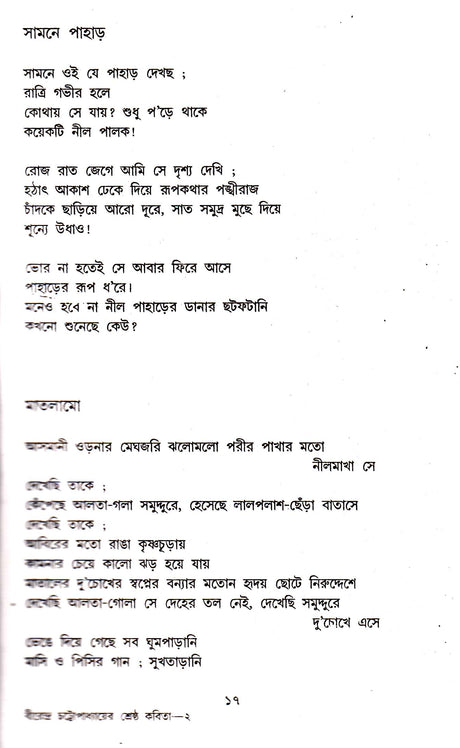 সামনে পাহাড়
সামনে ওই যে পাহাড় দেখছ ;
রাত্রি গভীর হলে
কোথায় সে যায়? শুধু প'ড়ে থাকে
কয়েকটি নীল পালক!
রোজ রাত জেগে আমি সে দৃশ্য দেখি ;
হঠাৎ আকাশ ঢেকে দিয়ে রূপকথার পঙ্খীরাজ
চাঁদকে ছাড়িয়ে আরো দূরে, সাত সমুদ্র মুছে দিয়ে
শূন্যে উধাও!
ভোর না হতেই সে আবার ফিরে আসে
পাহাড়ের রূপ ধ'রে।
মনেও হবে না নীল পাহাড়ের ডানার ছটফটানি
কখনো শুনেছে কেউ?
মাতলামো
আসমানী ওড়নার মেঘজরি ঝলোমলো পরীর পাখার মতো
নীলমাখা সে
দেখেছি তাকে ;
কেঁপেছে আলতা-গলা সমুদ্দুরে, হেসেছে লালপলাশ-ছেঁড়া বাতাসে
দেখেছি তাকে ;
আবিরের মতো রাঙা কৃষ্ণচূড়ায়
কামনার চেয়ে কালো ঝড় হয়ে যায়
মাতালের দু'চোখের স্বপ্নের বন্যার মতোন হৃদয় ছোটে নিরুদ্দেশে
দেখেছি আলতা-গোলা সে দেহের তল নেই, দেখেছি সমুদ্দুরে
দু'চোখে এসে
ভেঙে দিয়ে গেছে সব ঘুমপাড়ানি
মাসি ও পিসির গান ; সুখতাড়ানি
১৭
বীরেন্দ্র চট্টোপাধ্যায়ের শ্রেষ্ঠ কবিতা—২